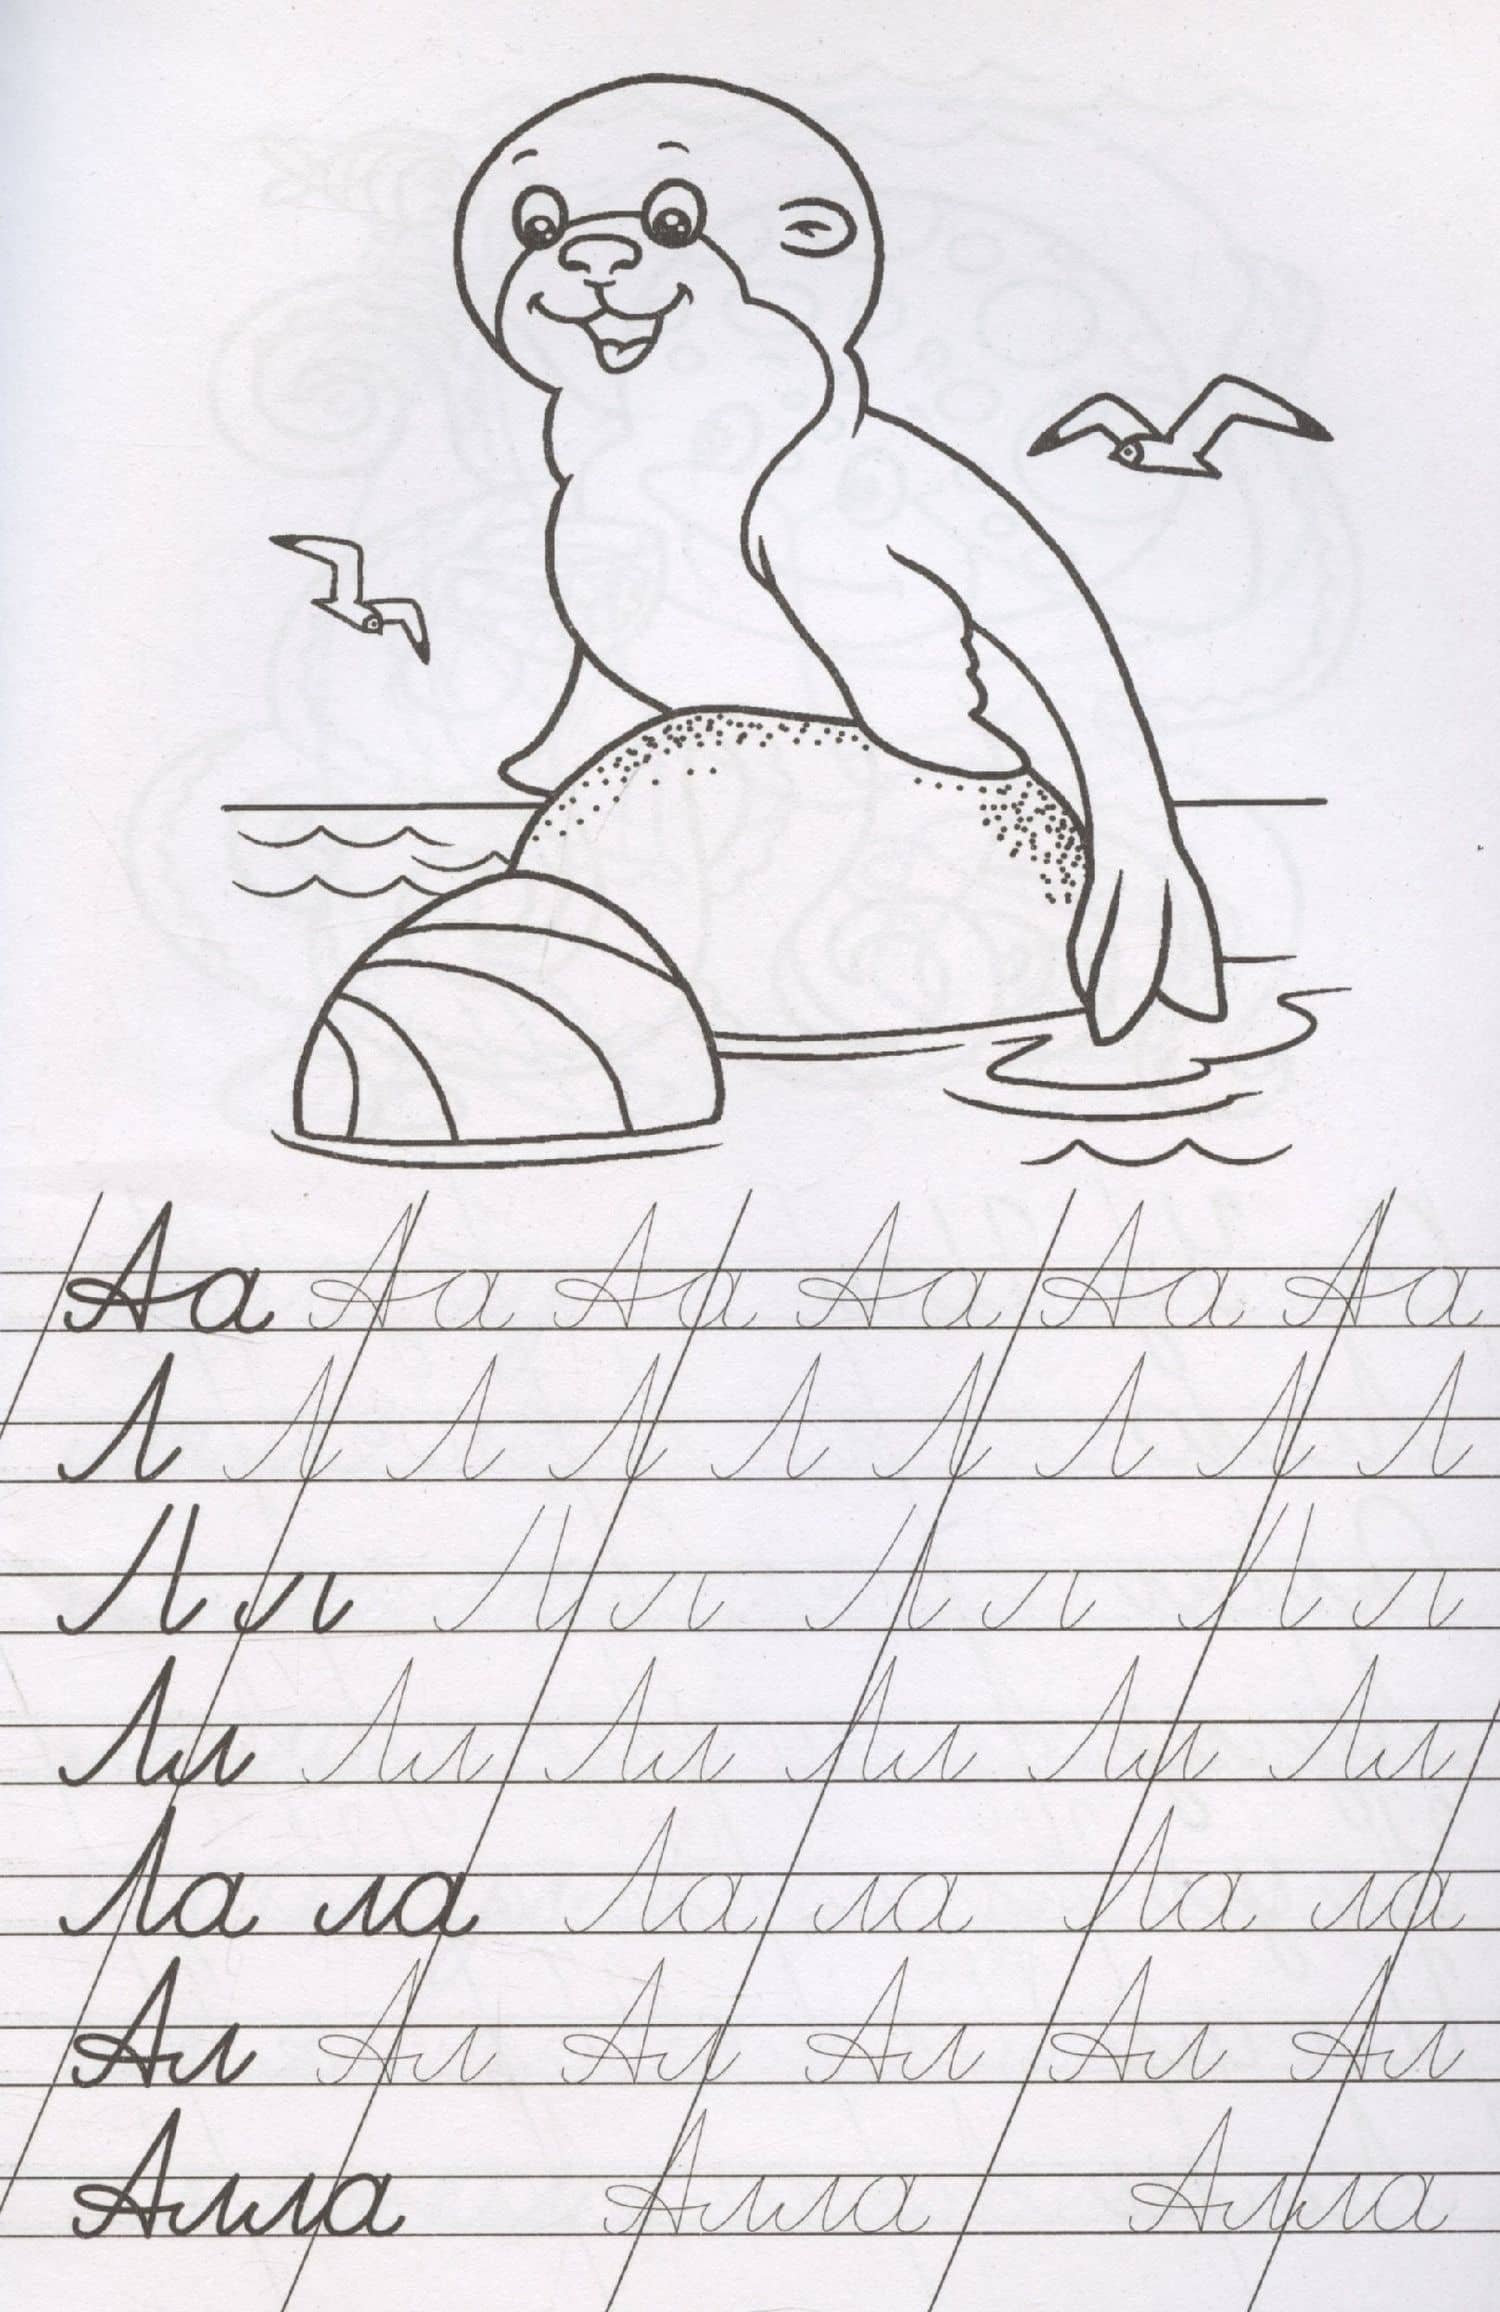 Аа Аа Аа Аа Аа Аа
Л Л Л Л Л Л Л Л Л
Л л Л л Л л Л л
Лл Лл Лл Лл Лл Лл
Ла ла Ла ла Ла ла
Ал Ал Ал Ал Ал Ал
Алла Алла Алла